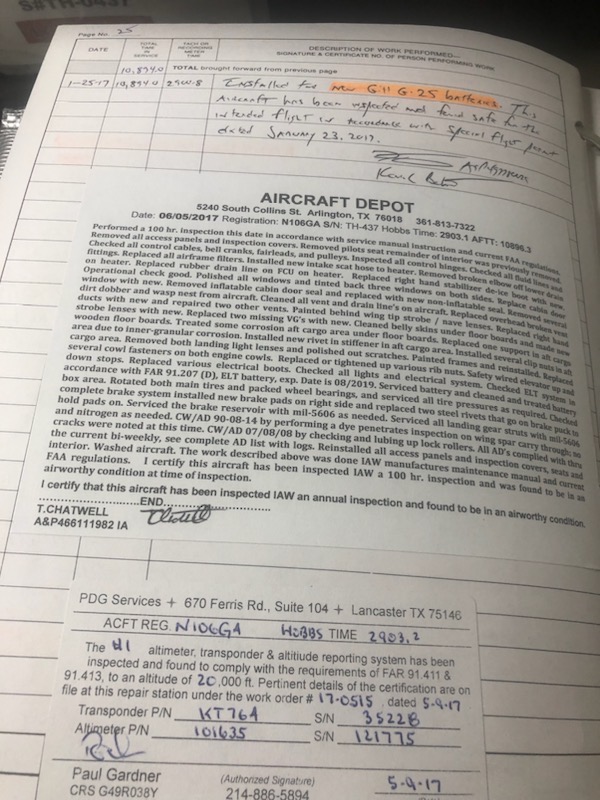 S#TH-0437
Page No. 25
DATE
TOTAL TIME IN SERVICE
TACH OR RECORDING METER TIME
DESCRIPTION OF WORK PERFORMED
SIGNATURE & CERTIFICATE NO. OF PERSON PERFORMING WORK
10,894.0 TOTAL brought forward from previous page
1-25-17 10,894.0 2900.8 Installed two new Gill G-25 batteries. This
Aircraft has been inspected and found safe for the
intended flight in accordance with special flight permit
dated January 23, 2017.
AIRCRAFT DEPOT
5240 South Collins St. Arlington, TX 76018 361-813-7322
Date: 06/05/2017 Registration: N106GA S/N: TH-437 Hobbs Time: 2903.1 AFTT: 10896.3
Performed a 100 hr. inspection this date in accordance with service manual instruction and current FAA regulations.
Removed all access panels and inspection covers. Removed pilots seat remainder of interior was previously removed.
Checked all control cables, bell cranks, fairleads, and pulleys. Inspected all control hinges. Checked all fluid lines and
fittings. Replaced all airframe filters. Installed new intake scat hose to heater. Removed broken elbow off lower drain
on heater. Replaced rubber drain line on FCU on heater. Replaced right hand stabilizer de-ice boot with new.
Operational check good. Polished all windows and tinted back three windows on both sides. Replace cabin door
window with new. Removed inflatable cabin door seal and replaced with new non-inflatable seal. Removed several
dirt dobber and wasp nest from aircraft. Cleaned all vent and drain line's on aircraft. Replaced overhead broken vent
ducts with new and repaired two other vents. Painted behind wing tip strobe / nave lenses. Replaced right hand
strobe lenses with new. Replaced two missing VG's with new. Cleaned belly skins under floor boards and made new
wooden floor boards. Treated some corrosion aft cargo area under floor boards. Replaced one support in aft cargo
area due to inner-granular corrosion. Installed new rivet in stiffener in aft cargo area. Installed several clip nuts in aft
cargo area. Removed both landing light lenses and polished out scratches. Painted frames and reinstalled. Replaced
several cowl fasteners on both engine cowls. Replaced or tightened up various rib nuts. Safety wired elevator up and
down stops. Replaced various electrical boots. Checked all lights and electrical system. Checked ELT system in
accordance with FAR 91.207 (D). ELT battery, exp. Date is 08/2019. Serviced battery and cleaned and treated battery
box area. Rotated both main tires and packed wheel bearings, and serviced all tire pressures as required. Checked
complete brake system installed new brake pads on right side and replaced two steel rivets that go on brake puck to
hold pads on. Serviced the brake reservoir with mil-5606 as needed. Serviced all landing gear struts with mil-5606
and nitrogen as needed. CW/AD 90-08-14 by performing a dye penetrate inspection on wing spar carry through; no
cracks were noted at this time. CW/AD 07/08/08 by checking and lubing up lock rollers. All AD's complied with thru
the current bi-weekly, see complete AD list with logs. Reinstalled all access panels and inspection covers, seats and
interior. Washed aircraft. The work described above was done IAW manufactures maintenance manual and current
FAA regulations. I certify this aircraft has been inspected IAW a 100 hr. inspection and was found to be in an
airworthy condition at time of inspection.
I certify that this aircraft has been inspected IAW an annual inspection and found to be in an airworthy condition.
END
T.CHATWELL
A&P466111982 IA
PDG Services + 670 Ferris Rd., Suite 104 + Lancaster TX 75146
ACFT REG. N106GA HOBBS TIME 2903.2
The #1 altimeter, transponder & altitiude reporting system has been
inspected and found to comply with the requirements of FAR 91.411 &
91.413, to an altitude of 20,000 ft. Pertinent details of the certification are on
file at this repair station under the work order # 17-0515 dated 5-9-17
Transponder P/N KT76A S/N 35228
Altimeter P/N 101635 S/N 121775
Paul Gardner (Authorized Signature) 5-9-17
CRS G49R038Y 214-886-5894